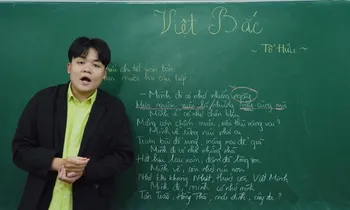 Việt Bắc
~ Tố Hữu ~
- Mình đi có nhớ những ngày
Mưa nguồn suối lũ những mây cùng mù
Mình về có nhớ chiến khu
Miếng cơm chấm muối, mối thù nặng vai?
Mình về rừng núi nhớ ai
Trám bùi để rụng măng mai để già
Mình đi có nhớ những nhà
Hắt hiu lau xám, đậm đà lòng son
Mình về, còn nhớ núi non
Nhớ khi kháng Nhật, thuở còn Việt Minh
Mình đi, mình có nhớ mình
Tân Trào, Hồng Thái, mái đình, cây đa?